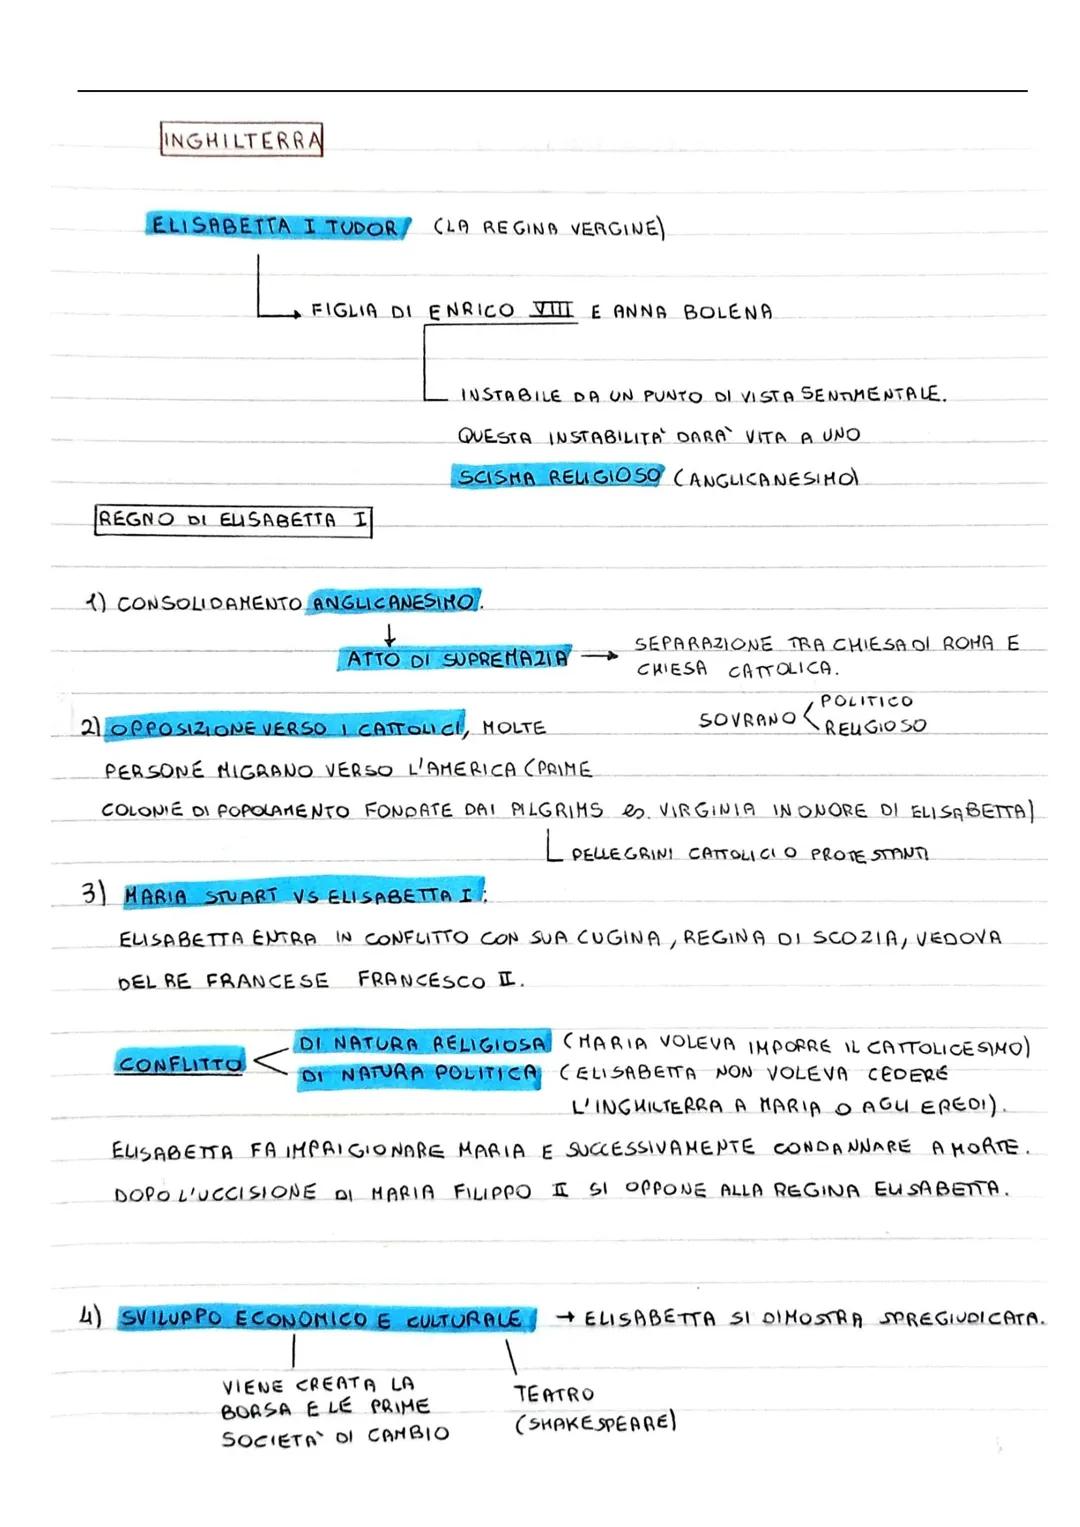 INGHILTERRA
ELISABETTA I TUDOR (LA REGINA VERGINE)
FIGLIA DI ENRICO VIII E ANNA BOLENA
INSTABILE DA UN PUNTO DI VISTA SENTIMENTALE.
QUESTA INSTABILITA' DARA' VITA A UNO
SCISMA RELIGIOSO (ANGLICANESIMO)
REGNO DI ELISABETTA I
1) CONSOLIDAMENTO ANGLICANESIMO.
ATTO DI SUPREMAZIA → SEPARAZIONE TRA CHIESA DI ROMA E
CHIESA CATTOLICA.
SOVRANO < POLITICO
RELIGIOSO
2) OPPOSIZIONE VERSO I CATTOLICI, MOLTE
PERSONE MIGRANO VERSO L'AMERICA (PRIME
COLONIE DI POPOLAMENTO FONDATE DAI PILGRIMS es. VIRGINIA IN ONORE DI ELISABETTA)
PELLEGRINI CATTOLICI O PROTESTANTI
3) MARIA STUART VS ELISABETTA I:
ELISABETTA ENTRA IN CONFLITTO CON SUA CUGINA, REGINA DI SCOZIA, VEDOVA
DEL RE FRANCESE FRANCESCO II.
CONFLITTO < DI NATURA RELIGIOSA (MARIA VOLEVA IMPORRE IL CATTOLICESIMO)
DI NATURA POLITICA (ELISABETTA NON VOLEVA CEDERE
L'INGHILTERRA A MARIA O AGLI EREDI).
ELISABETTA FA IMPRIGIONARE MARIA E SUCCESSIVAMENTE CONDANNARE A MORTE.
DOPO L'UCCISIONE DI MARIA FILIPPO II SI OPPONE ALLA REGINA ELISABETTA.
4) SVILUPPO ECONOMICO E CULTURALE → ELISABETTA SI DIMOSTRA SPREGIUDICATA.
VIENE CREATA LA
BORSA E LE PRIME
SOCIETA' DI CAMBIO
TEATRO
(SHAKESPEARE)